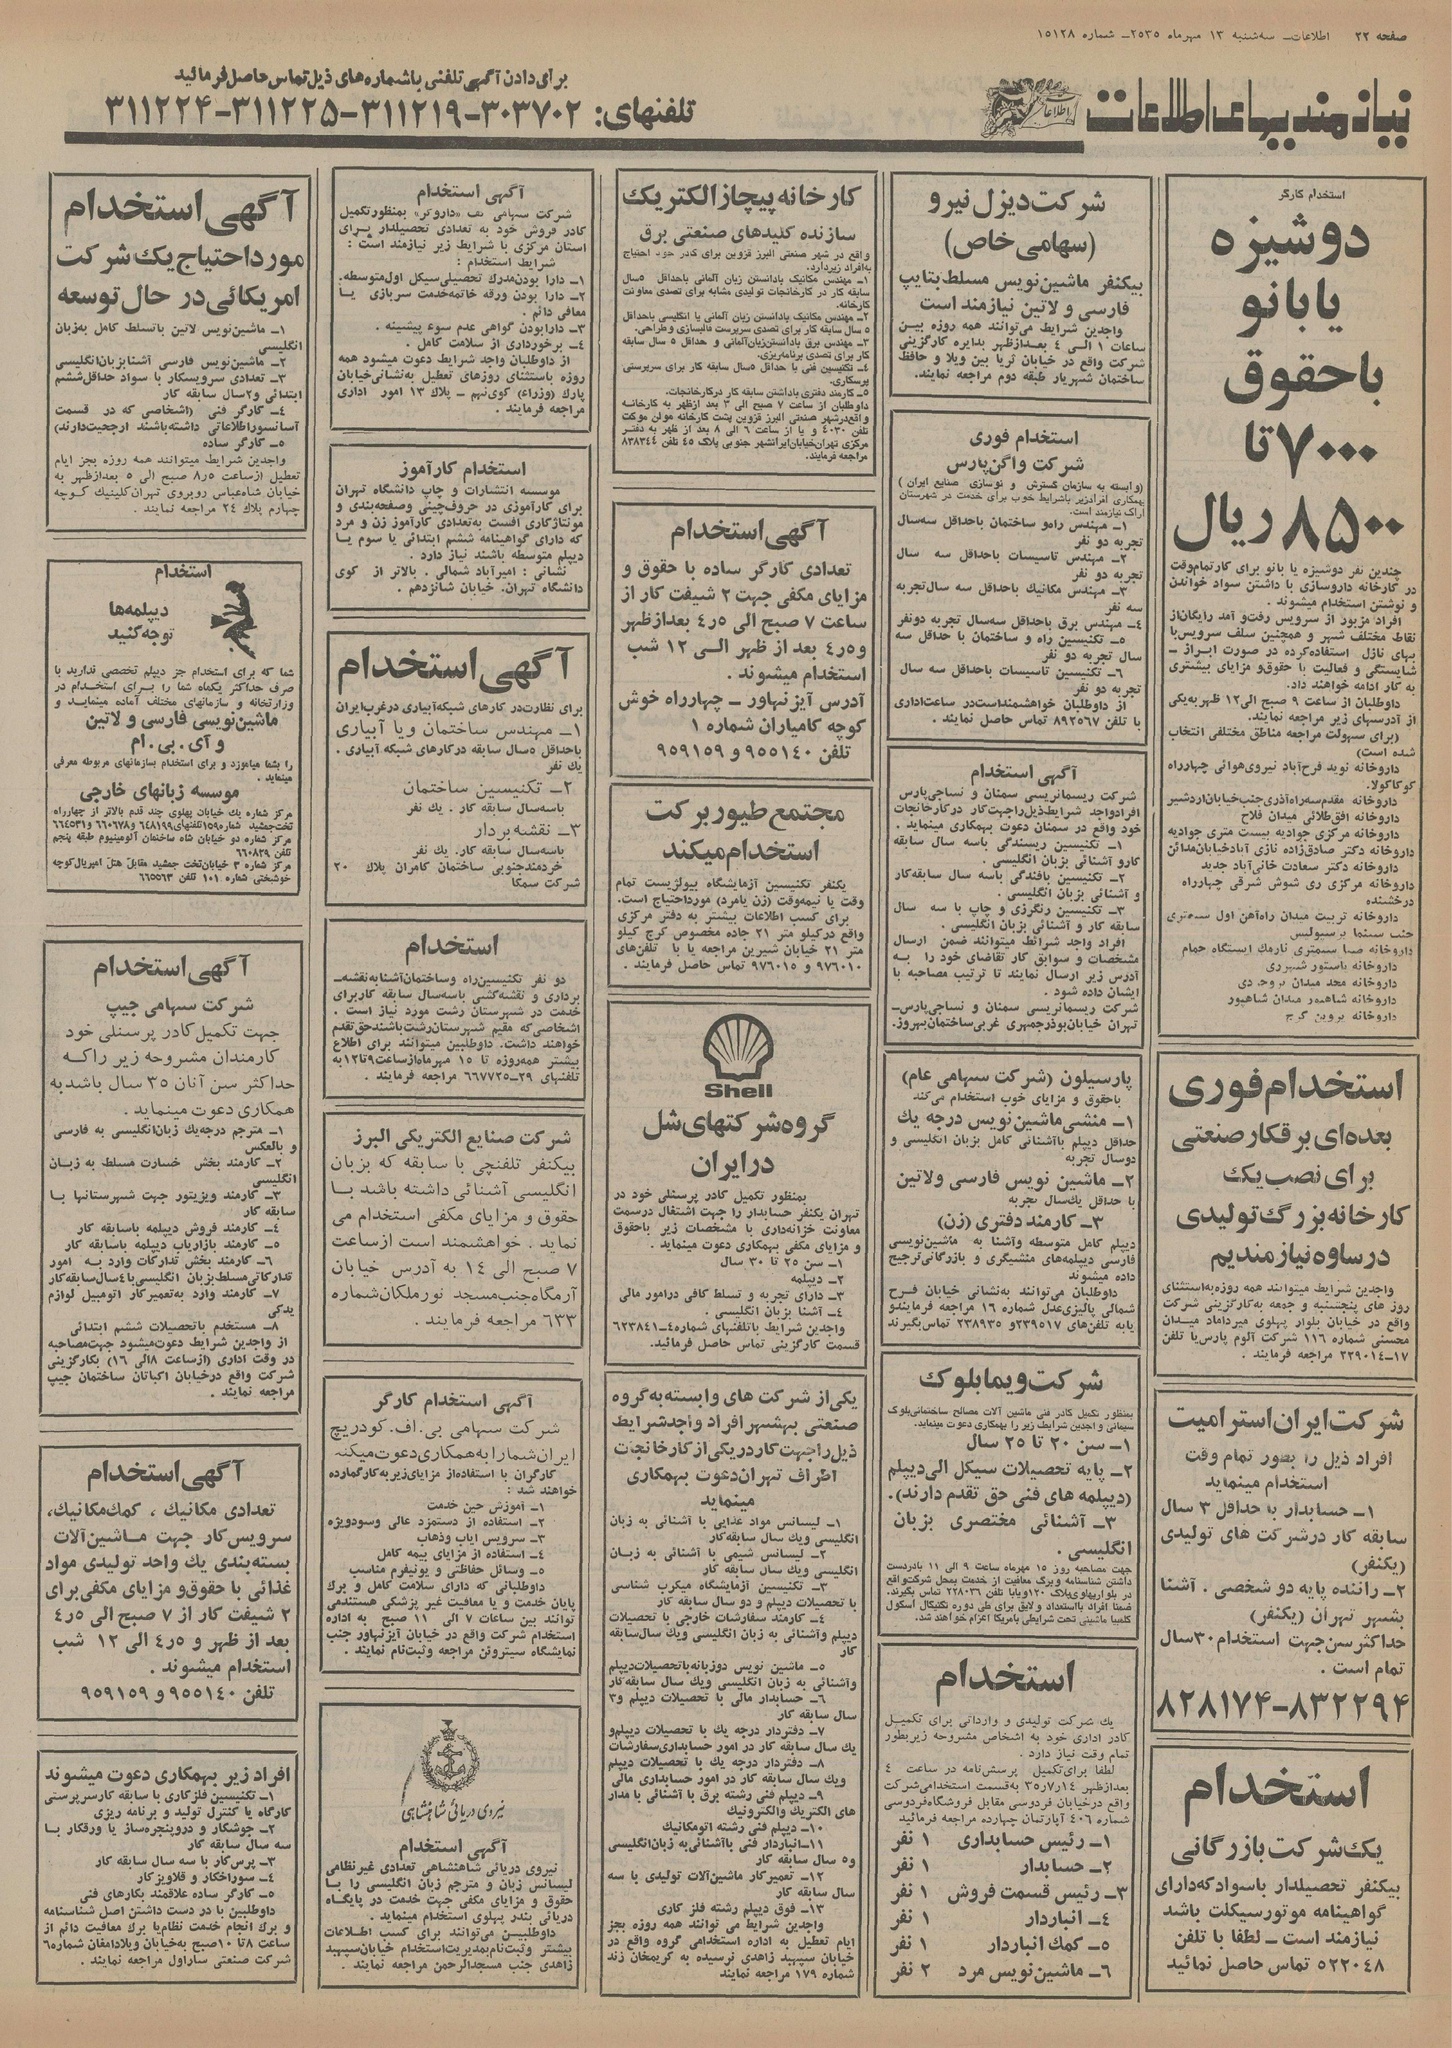 صفحه ۲۲ اطلاعات ــ سه‌شنبه ۱۳ مهرماه ۲۵۳۵ ــ شماره ۱۵۱۲۸
نیازمندیهای اطلاعات
برای دادن آگهی تلفنی باشماره‌های ذیل تماس حاصل فرمائید
تلفنهای: ۳۰۳۷۰۲-۳۱۱۲۱۹-۳۱۱۲۲۵-۳۱۱۲۲۴
استخدام کارگر
دوشیزه
یا بانو
باحقوق
۷۰۰۰ تا
۸۵۰۰ ریال
چندین نفر دوشیزه یا بانو برای کار تمام‌وقت
در کارخانه داروسازی با داشتن سواد خواندن
و نوشتن استخدام میشوند.
افراد مزبور از سرویس رفت‌و آمد رایگان از
نقاط مختلف شهر و همچنین سلف سرویس با
بهای نازل استفاده‌کرده در صورت ابراز ــ
شایستگی و فعالیت با حقوق‌و مزایای بیشتری
به کار ادامه خواهند داد.
داوطلبان از ساعت ۹ صبح الی۱۲ ظهر به‌یکی
از آدرسهای زیر مراجعه نمایند.
(برای سهولت مراجعه مناطق مختلفی انتخاب
شده است)
داروخانه نوید فرح‌آباد نیروی‌هوائی چهارراه
کوکاکولا.
داروخانه مقدم سه‌راه‌آذری‌جنب‌خیابان‌اردشیر
داروخانه افق‌طلائی میدان فلاح
داروخانه مرکزی جوادیه بیست متری جوادیه
داروخانه دکتر صادق‌زاده نازی آبادخیابان‌مدائن
داروخانه دکتر سعادت خانی‌آباد جدید
داروخانه مرکزی ری شوش شرقی چهارراه
درخشنده
داروخانه تربیت میدان راه‌آهن اول سی‌متری
جنب سینما پرسپولیس
داروخانه صبا سی‌متری نارمک ایستگاه حمام
داروخانه پاستور شهرری
داروخانه مجد میدان بروجردی
داروخانه شاهپور میدان شاهپور
داروخانه پروین کرج
استخدام فوری
بعده‌ای برقکار صنعتی
برای نصب یک
کارخانه بزرگ تولیدی
در ساوه نیازمندیم
واجدین شرایط میتوانند همه روزه‌به‌استثنای
روز های پنجشنبه و جمعه به‌کارگزینی شرکت
واقع در خیابان بلوار پهلوی میرداماد میدان
محسنی شماره ۱۱۶ شرکت آلوم پارس‌یا تلفن
۱۷-۲۲۹۰۱۴ مراجعه فرمایند.
شرکت ایران استرامیت
افراد ذیل را بطور تمام وقت
استخدام مینماید
۱ــ حسابدار با حداقل ۳ سال
سابقه کار درشرکت های تولیدی
(یکنفر)
۲ــ راننده پایه دو شخصی. آشنا
بشهر تهران (یکنفر)
حداکثر سن جهت استخدام ۳۰سال
تمام است.
۸۲۸۱۷۴-۸۳۲۲۹۴
استخدام
یک شرکت بازرگانی
بیکنفر تحصیلدار باسوادکه‌دارای
گواهینامه موتورسیکلت باشد
نیازمند است ــ لطفا با تلفن
۵۲۲۰۴۸ تماس حاصل نمائید
شرکت دیزل نیرو
(سهامی خاص)
بیکنفر ماشین‌نویس مسلط بتایپ
فارسی و لاتین نیازمند است
واجدین شرایط می‌توانند همه روزه بین
ساعات ۱ الی ۴ بعدازظهر بدایره کارگزینی
شرکت واقع در خیابان ثریا بین ویلا و حافظ
ساختمان شهریار طبقه دوم مراجعه نمایند.
استخدام فوری
شرکت واگن‌پارس
(وابسته به سازمان گسترش و نوسازی صنایع ایران)
بهمکاری افرادزیر باشرایط خوب برای خدمت در شهرستان
اراک نیازمند است.
۱ــ مهندس راه‌و ساختمان باحداقل سه‌سال
تجربه دو نفر
۲ــ مهندس تاسیسات باحداقل سه سال
تجربه دو نفر
۳ــ مهندس مکانیک باحداقل سه سال‌تجربه
سه نفر
۴ــ مهندس برق باحداقل سه‌سال تجربه دونفر
۵ــ تکنیسین راه و ساختمان با حداقل سه
سال تجربه دو نفر
۶ــ تکنیسین تاسیسات باحداقل سه سال
تجربه دو نفر
از داوطلبان خواهشمنداست‌در ساعت‌اداری
با تلفن ۸۹۲۵۶۷ تماس حاصل نمایند.
آگهی استخدام
شرکت ریسمانریسی سمنان و نساجی‌پارس
افرادواجد شرایط‌ذیل‌راجهت‌کار درکارخانجات
خود واقع در سمنان دعوت بهمکاری مینماید.
۱ــ تکنیسین ریسندگی باسه سال سابقه
کارو آشنائی بزبان انگلیسی.
۲ــ تکنیسین بافندگی باسه سال سابقه‌کار
و آشنائی بزبان انگلیسی.
۳ــ تکنیسین رنگرزی و چاپ با سه سال
سابقه کار و آشنائی بزبان انگلیسی.
افراد واجد شرائط میتوانند ضمن ارسال
مشخصات و سوابق کار تقاضای خود را به
آدرس زیر ارسال نمایند تا ترتیب مصاحبه با
ایشان داده شود.
شرکت ریسمانریسی سمنان و نساجی‌پارس‌ــ
تهران خیابان‌بوذرجمهری غربی‌ساختمان‌بهروز.
پارسیلون (شرکت سهامی عام)
باحقوق و مزایای خوب استخدام می‌کند
۱ــ منشی ماشین‌نویس درجه یک
حداقل دیپلم باآشنائی کامل بزبان انگلیسی و
دوسال تجربه
۲ــ ماشین نویس فارسی ولاتین
با حداقل یک‌سال تجربه
۳ــ کارمند دفتری (زن)
دیپلم کامل متوسطه وآشنا به ماشین‌نویسی
فارسی دیپلمه‌های منشیگری و بازرگانی ترجیح
داده میشوند
داوطلبان میتوانند به‌نشانی خیابان فرح
شمالی پالیزی‌عدل شماره ۱۶ مراجعه فرمایندو
یابه تلفن‌های ۲۳۹۵۱۷و ۲۳۸۹۳۵ تماس‌بگیرند
شرکت ویمابلوک
بمنظور تکمیل کادر فنی ماشین آلات مصالح ساختمانی‌بلوک
سیمانی و اجدین شرایط زیر را بهمکاری دعوت مینماید.
۱ــ سن ۲۰ تا ۲۵ سال
۲ــ پایه تحصیلات سیکل الی‌دیپلم
(دیپلمه های فنی حق تقدم دارند).
۳ــ آشنائی مختصری بزبان
انگلیسی.
جهت مصاحبه روز ۱۵ مهرماه ساعت ۹ الی ۱۱ بادردست
داشتن شناسنامه وبرگ معافیت از خدمت بمحل شرکت‌واقع
در بلوارپهلوی‌پلاک ۱۲۰ویابا تلفن ۲۲۸۰۳۶ تماس بگیرند.
ضمنا افراد بااستعداد و لایق برای طی دوره تکنیکال اسکول
کلمبیا ماشینی تحت شرایطی بامریکا اعزام خواهند شد.
استخدام
یک شرکت تولیدی و وارداتی برای تکمیل
کادر اداری خود به اشخاص مشروحه زیربطور
تمام وقت نیاز دارد.
لطفا برای‌تکمیل پرسش‌نامه در ساعت ۴
بعدازظهر ۳۵٫۷٫۱۴ به‌قسمت استخدامی‌شرکت
واقع درخیابان فردوسی مقابل فروشگاه‌فردوسی
شماره ۴۰۶ آپارتمان چهارده مراجعه فرمائید
۱ــ رئیس حسابداری ۱ نفر
۲ــ حسابدار ۱ نفر
۳ــ رئیس قسمت فروش ۱ نفر
۴ــ انباردار ۱ نفر
۵ــ کمک انباردار ۱ نفر
۶ــ ماشین‌نویس مرد ۲ نفر
کارخانه پیچاز الکتریک
سازنده کلیدهای صنعتی برق
واقع در شهر صنعتی البرز قزوین برای کادر خود احتیاج
به‌افراد زیردارد.
۱ــ مهندس مکانیک بادانستن زبان آلمانی باحداقل ۵سال
سابقه کار در کارخانجات تولیدی مشابه برای تصدی معاونت
کارخانه.
۲ــ مهندس مکانیک بادانستن زبان آلمانی یا انگلیسی باحداقل
۵ سال سابقه کار برای تصدی سرپرست قالبسازی وطراحی.
۳ــ مهندس برق بادانستن‌زبان‌آلمانی و حداقل ۵ سال سابقه
کار برای تصدی برنامه‌ریزی.
۴ــ تکنیسین فنی با حداقل ۵سال سابقه کار برای سرپرستی
پرسکاری.
۵ــ کارمند دفتری باداشتن سابقه کار درکارخانجات.
داوطلبان از ساعت ۷ صبح‌الی ۳ بعد ازظهر به کارخانه
واقع‌درشهر صنعتی البرز قزوین پشت کارخانه مولن موکت
تلفن ۴۰۳۰ و یا از ساعت ۶ الی ۸ بعد از ظهر به دفتر
مرکزی تهران‌خیابان‌ایرانشهر جنوبی پلاک ۴۵ تلفن ۸۳۸۳۴۴
مراجعه فرمایند.
آگهی استخدام
تعدادی کارگر ساده با حقوق و
مزایای مکفی جهت ۲ شیفت کار از
ساعت ۷ صبح الی ۴٫۵ بعدازظهر
و ۴٫۵ بعد از ظهر الی ۱۲ شب
استخدام میشوند.
آدرس آیزنهاور ــ چهارراه خوش
کوچه کامیاران شماره ۱
تلفن ۹۵۵۱۴۰ و ۹۵۹۱۵۹
مجتمع طیور برکت
استخدام میکند
یکنفر تکنیسین آزمایشگاه بیولژیست تمام
وقت یا نیمه‌وقت (زن یامرد) مورداحتیاج است.
برای کسب اطلاعات بیشتر به دفتر مرکزی
واقع درکیلو متر ۲۱ جاده مخصوص کرج کیلو
متر ۲۱ خیابان شیرین مراجعه یا با تلفن‌های
۹۷۶۰۱۰ و ۹۷۶۰۱۵ تماس حاصل فرمایند.
Shell
گروه شرکتهای شل
در ایران
بمنظور تکمیل کادر پرسنلی خود در
تهران یکنفر حسابدار را جهت اشتغال درسمت
معاونت خزانه‌داری با مشخصات زیر باحقوق
و مزایای مکفی بهمکاری دعوت مینماید.
۱ــ سن ۲۵ تا ۳۰ سال
۲ــ دیپلمه
۳ــ دارای تجربه و تسلط کافی درامور مالی
۴ــ آشنا بزبان انگلیسی.
واجدین شرایط باتلفنهای شماره۴ــ۶۲۳۸۴۱
قسمت کارگزینی تماس حاصل فرمائید.
یکی از شرکت های وابسته به‌گروه
صنعتی بهشهر افراد واجدشرایط
ذیل‌راجهت کار دریکی‌از کارخانجات
اطراف تهران‌دعوت بهمکاری
مینماید
۱ــ لیسانس مواد غذایی با آشنائی به زبان
انگلیسی ویک سال سابقه‌کار
۲ــ لیسانس شیمی با آشنائی به زبان
انگلیسی ویک سال سابقه کار
۳ــ تکنیسین آزمایشگاه میکرب شناسی
با تحصیلات دیپلم و دو سال سابقه کار
۴ــ کارمند سفارشات خارجی با تحصیلات
دیپلم وآشنائی به زبان انگلیسی ویک سال‌سابقه
کار
۵ــ ماشین نویس دوزبانه باتحصیلات‌دیپلم
وآشنائی به زبان انگلیسی ویک سال سابقه‌کار
۶ــ حسابدار مالی با تحصیلات دیپلم و۳
سال سابقه کار
۷ــ دفتردار درجه یک با تحصیلات دیپلم‌و
یک سال سابقه کار در امور حسابداری‌سفارشات
۸ــ دفتردار درجه یک با تحصیلات دیپلم
ویک سال سابقه کار در امور حسابداری مالی
۹ــ دیپلم فنی رشته برق با آشنائی با مدار
های الکتریک والکترونیک
۱۰ــ دیپلم فنی رشته اتومکانیک
۱۱ــ انباردار فنی باآشنائی به زبان‌انگلیسی
و۵ سال سابقه کار
۱۲ــ تعمیرکار ماشین‌آلات تولیدی با سه
سال سابقه کار
۱۳ــ فوق دیپلم رشته فلز کاری
واجدین شرایط می توانند همه روزه بجز
ایام تعطیل به اداره استخدامی گروه واقع در
خیابان سپهبد زاهدی نرسیده به کریمخان زند
شماره ۱۷۹ مراجعه نمایند
آگهی استخدام
شرکت سهامی تف «داروگر» بمنظورتکمیل
کادر فروش خود به تعدادی تحصیلدار برای
استان مرکزی با شرایط زیر نیازمند است:
شرایط استخدام:
۱ــ دارا بودن‌مدرک تحصیلی‌سیکل اول‌متوسطه.
۲ــ دارا بودن ورقه خاتمه‌خدمت سربازی یا
معافی دائم.
۳ــ دارابودن گواهی عدم سوء پیشینه.
۴ــ برخورداری از سلامت کامل.
از داوطلبان واجد شرایط دعوت میشود همه
روزه باستثنای روزهای تعطیل به‌نشانی‌خیابان
پارک (وزراء) کوی‌نهم ــ پلاک ۱۳ امور اداری
مراجعه فرمایند.
استخدام کارآموز
موسسه انتشارات و چاپ دانشگاه تهران
برای کارآموزی در حروف‌چینی وصفحه‌بندی و
مونتاژکاری افست به‌تعدادی کارآموز زن و مرد
که دارای گواهینامه ششم ابتدائی یا سوم یا
دیپلم متوسطه باشند نیاز دارد.
نشانی: امیرآباد شمالی. بالاتر از کوی
دانشگاه تهران. خیابان شانزدهم.
آگهی استخدام
برای نظارت‌در کارهای شبکه‌آبیاری درغرب‌ایران
۱ــ مهندس ساختمان ویا آبیاری
باحداقل ۵سال سابقه درکارهای شبکه آبیاری.
یک نفر
۲ــ تکنیسین ساختمان
باسه‌سال سابقه کار. یک نفر
۳ــ نقشه‌بردار
باسه‌سال سابقه کار. یک نفر
خردمندجنوبی ساختمان کامران پلاک ۲۰
شرکت سمکا
استخدام
دو نفر تکنیسین‌راه وساختمان‌آشنا به‌نقشه‌ــ
برداری و نقشه‌کشی باسه‌سال سابقه کاربرای
خدمت در شهرستان رشت مورد نیاز است.
اشخاصی‌که مقیم شهرستان‌رشت‌باشندحق‌تقدم
خواهند داشت. داوطلبین میتوانند برای اطلاع
بیشتر همه‌روزه تا ۱۵ مهرماه‌ازساعت۹تا۱۲به
تلفنهای ۲۹ــ۶۶۷۷۲۵ مراجعه فرمایند.
شرکت صنایع الکتریکی البرز
بیکنفر تلفنچی با سابقه که بزبان
انگلیسی آشنائی داشته باشد با
حقوق و مزایای مکفی استخدام می
نماید. خواهشمند است ازساعت
۷ صبح الی ۱۴ به آدرس خیابان
آرمگاه‌جنب‌مسجد نور ملکان‌شماره
۶۳۳ مراجعه فرمایند.
آگهی استخدام کارگر
شرکت سهامی بی.اف. گودریچ
ایران‌شمارابه‌همکاری دعوت‌میکند
کارگران با استفاده‌از مزایای‌زیر به‌کارگمارده
خواهند شد:
۱ــ آموزش حین خدمت
۲ــ استفاده از دستمزد عالی وسودویژه
۳ــ سرویس ایاب وذهاب
۴ــ استفاده از مزایای بیمه کامل
۵ــ وسائل حفاظتی و یونیفرم مناسب
داوطلبانی که دارای سلامت کامل و برگ
پایان خدمت و یا معافیت غیر پزشکی هستند‌می
توانند بین ساعات ۷ الی ۱۱ صبح به اداره
استخدام شرکت واقع در خیابان آیزنهاور جنب
نمایشگاه سیتروئن مراجعه وثبت‌نام نمایند.
نیروی دریائی شاهنشاهی
آگهی استخدام
نیروی دریائی شاهنشاهی تعدادی غیرنظامی
لیسانس زبان و مترجم زبان انگلیسی را با
حقوق و مزایای مکفی جهت خدمت در پایگاه
دریائی بندر پهلوی استخدام مینماید.
داوطلبین می‌توانند برای کسب اطلاعات
بیشتر وثبت‌نام‌بمدیریت‌استخدام خیابان‌سپهبد
زاهدی جنب مسجدالرحمن مراجعه نمایند.
آگهی استخدام
مورداحتیاج یک شرکت
امریکائی در حال توسعه
۱ــ ماشین‌نویس لاتین باتسلط کامل به‌زبان
انگلیسی
۲ــ ماشین‌نویس فارسی آشنابزبان‌انگلیسی
۳ــ تعدادی سرویسکار با سواد حداقل‌ششم
ابتدائی و۲سال سابقه کار
۴ــ کارگر فنی (اشخاصی که در قسمت
آسانسوراطلاعاتی داشته‌باشند ارجحیت‌دارند)
۵ــ کارگر ساده
واجدین شرایط میتوانند همه روزه بجز ایام
تعطیل ازساعت ۸٫۵ صبح الی ۵ بعدازظهر به
خیابان شاه‌عباس روبروی تهران‌کلینیک کوچه
چهارم پلاک ۲۴ مراجعه نمایند.
استخدام
دیپلمه‌ها
توجه کنید
شما که برای استخدام جز دیپلم تخصصی ندارید با
صرف حداکثر یکماه شما را برای استخدام در
وزارتخانه و سازمانهای مختلف آماده مینماید و
ماشین‌نویسی فارسی و لاتین
و آی.بی.ام
را بشما میاموزد و برای استخدام بسازمانهای مربوطه معرفی
مینماید.
موسسه زبانهای خارجی
مرکز شماره یک خیابان پهلوی چند قدم بالاتر از چهارراه
تخت‌جمشید شماره۱۵۹۰تلفنهای۶۴۸۱۹۹ و ۶۶۰۶۷۸ و ۶۶۴۵۳۱
مرکز شماره دو خیابان شاه ساختمان آلومینیوم طبقه پنجم
تلفن ۶۶۰۸۲۹
مرکز شماره ۳ خیابان‌تخت جمشید مقابل هتل امپریال‌کوچه
خوشبختی شماره ۱۰۱ تلفن ۶۶۵۵۶۳
آگهی استخدام
شرکت سهامی جیپ
جهت تکمیل کادر پرسنلی خود
کارمندان مشروحه زیر راکه
حداکثر سن آنان ۳۵ سال باشدبه
همکاری دعوت مینماید.
۱ــ مترجم درجه‌یک زبان‌انگلیسی به فارسی
و بالعکس
۲ــ کارمند بخش خسارت مسلط به زبان
انگلیسی
۳ــ کارمند ویزیتور جهت شهرستانها با
سابقه کار
۴ــ کارمند فروش دیپلمه باسابقه کار
۵ــ کارمند بازاریاب دیپلمه باسابقه کار
۶ــ کارمند بخش تدارکات وارد به امور
تدارکاتی‌مسلط‌بزبان انگلیسی‌با۴سال‌سابقه‌کار
۷ــ کارمند وارد به‌تعمیرکار اتومبیل لوازم
یدکی
۸ــ مستخدم باتحصیلات ششم ابتدائی
از واجدین شرایط دعوت‌میشود جهت‌مصاحبه
در وقت اداری (ازساعت ۸الی ۱۶) بکارگزینی
شرکت واقع درخیابان اکباتان ساختمان جیپ
مراجعه نمایند.
آگهی استخدام
تعدادی مکانیک، کمک‌مکانیک،
سرویس‌کار جهت ماشین‌آلات
بسته‌بندی یک واحد تولیدی مواد
غذائی با حقوق‌و مزایای مکفی‌برای
۲ شیفت کار از ۷ صبح الی ۴٫۵
بعد از ظهر و ۴٫۵ الی ۱۲ شب
استخدام میشوند.
تلفن ۹۵۵۱۴۰ و ۹۵۹۱۵۹
افراد زیر بهمکاری دعوت میشوند
۱ــ تکنیسین فلزکاری با سابقه کارسرپرستی
کارگاه یا کنترل تولید و برنامه ریزی
۲ــ جوشکار و دروپنجره‌ساز یا ورقکار با
سه سال سابقه کار
۳ــ پرس‌کار با سه سال سابقه کار
۴ــ سوراخکار و قلاویزکار
۵ــ کارگر ساده علاقمند بکارهای فنی
داوطلبین با در دست داشتن اصل شناسنامه
و برگ انجام خدمت نظام‌یا برگ معافیت دائم از
ساعت ۸تا ۱۰صبح به‌خیابان ویلادامغان شماره۶
شرکت صنعتی ساراول مراجعه نمایند.